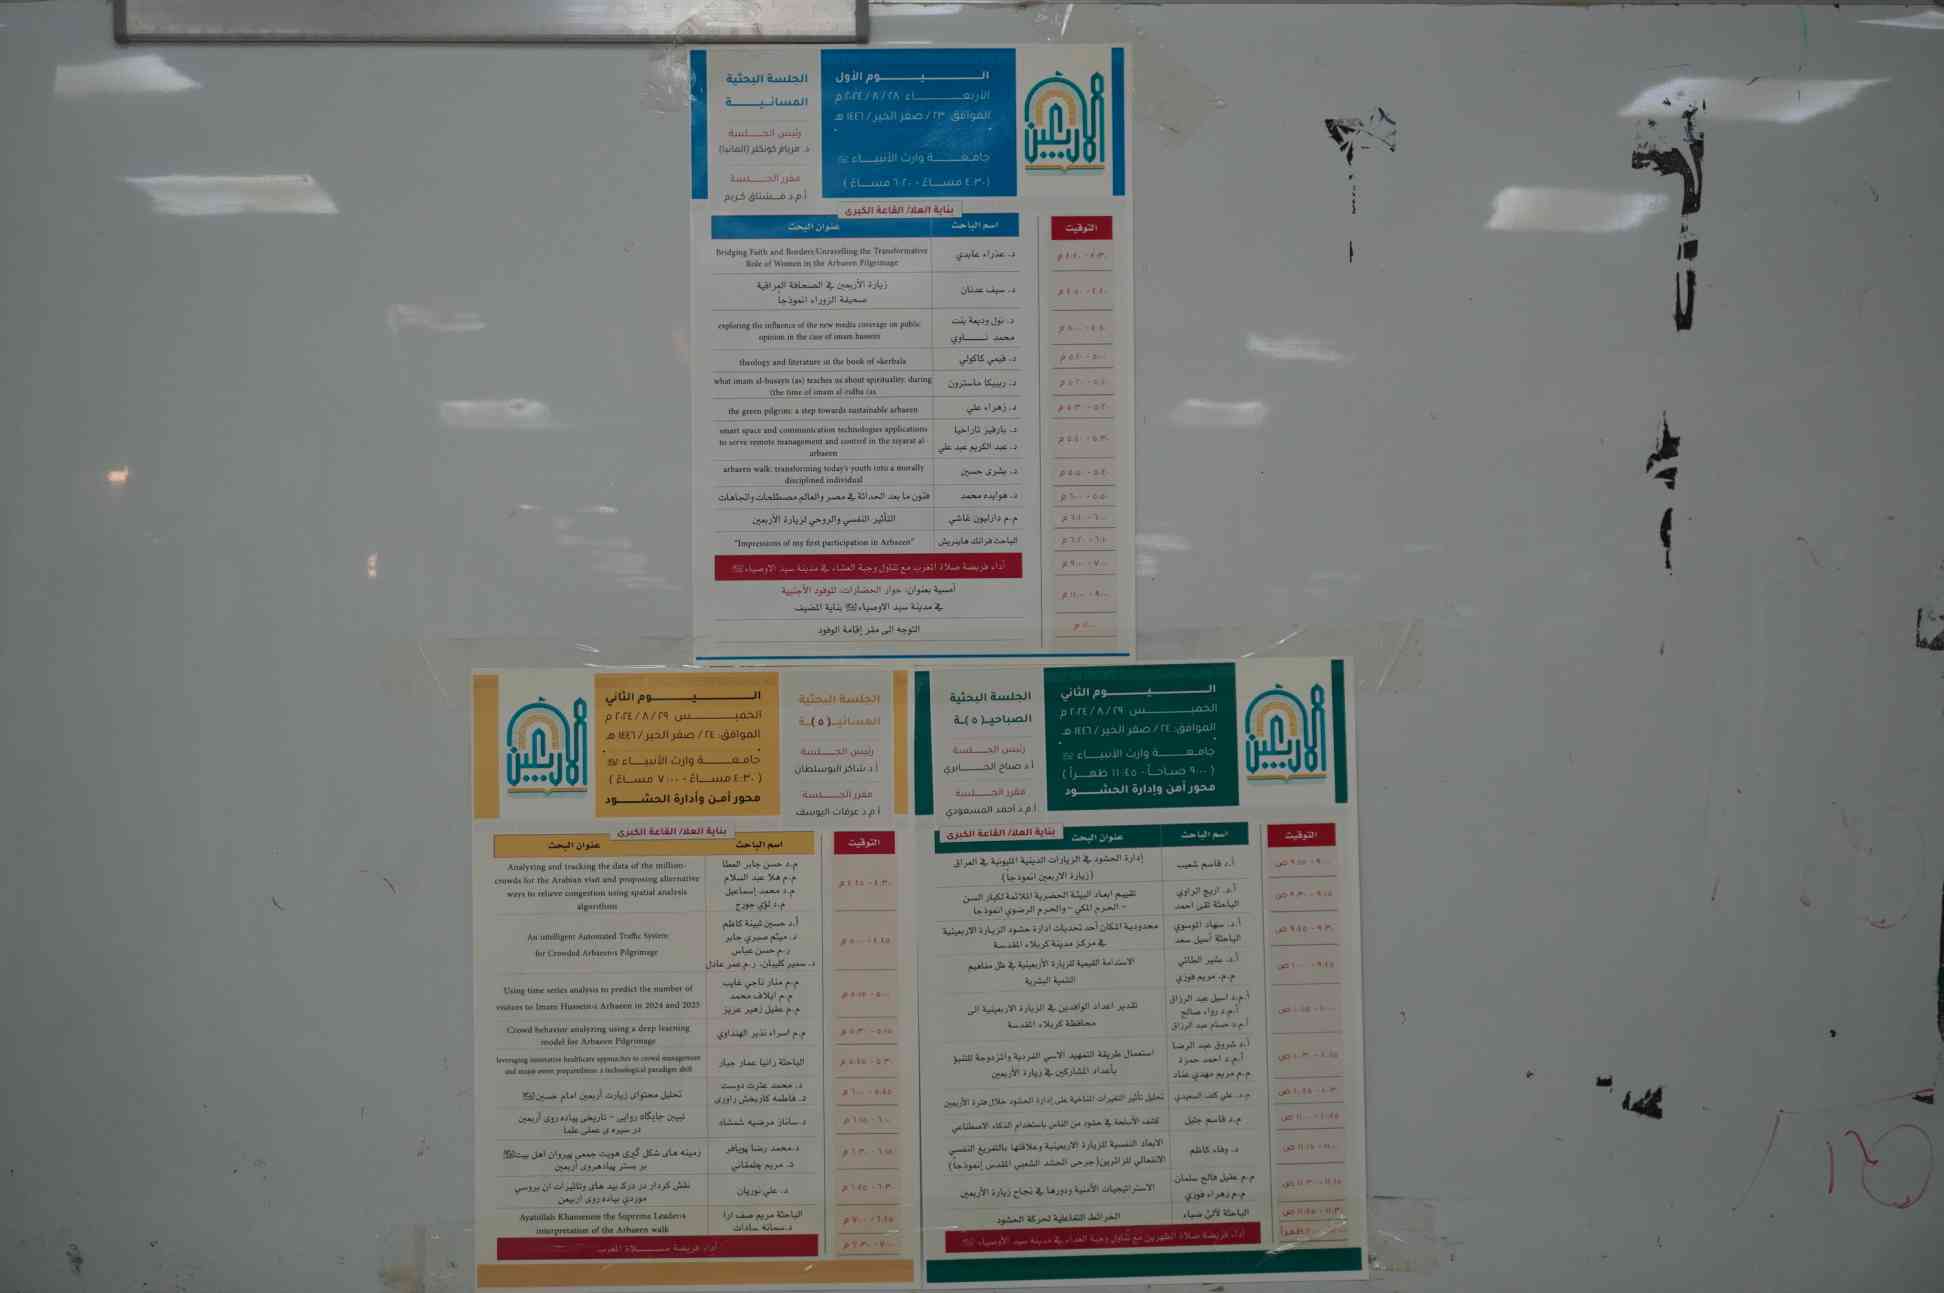 اليوم الأول
الأربعاء ٢٨ / ٨ / ٢٠٢٤ م
الموافق ٢٣ / صفر الخير / ١٤٤٦ هـ
جامعة وارث الأنبياء
(٤:٣٠ مساءً - ٦:٢٠ مساءً)
الأربعين
الجلسة البحثية
المسائية
رئيس الجلسة
د. مريام كونكلر (المانيا)
مقرر الجلسة
أ.م.د مشتاق كريم
بناية العلا/ القاعة الكبرى
التوقيت
اسم الباحث
عنوان البحث
٤:٣٠ - ٤:٤٠ م
د. عذراء عابدي
Bridging Faith and Borders:Unravelling the Transformative
Role of Women in the Arbaeen Pilgrimage
٤:٤٠ - ٤:٥٠ م
د. سيف عدنان
زيارة الأربعين في الصحافة العراقية
صحيفة الزوراء انموذجاً
٤:٥٠ - ٥:٠٠ م
د. نول وديعة بنت
محمد نـاوي
exploring the influence of the new media coverage on public
opinion in the case of imam hussein
٥:٠٠ - ٥:١٠ م
د. فيمي كاكولي
theology and literature in the book of «kerbala
٥:١٠ - ٥:٢٠ م
د. ريبيكا ماسترون
what imam al-husayn (as) teaches us about spirituality, during
(the time of imam al-ridha (as
٥:٢٠ - ٥:٣٠ م
د. زهراء علي
the green pilgrim: a step towards sustainable arbaeen
٥:٣٠ - ٥:٤٠ م
د. عبد الكريم عبد علي
smart space and communication technologies applications
to serve remote management and control in the ziyarat al-
arbaeen
٥:٤٠ - ٥:٥٠ م
د. بشرى حسين
arbaeen walk: transforming today's youth into a morally
disciplined individual
٥:٥٠ - ٦:٠٠ م
د. هوايده محمد
فنون ما بعد الحداثة في مصر والعالم مصطلحات واتجاهات
٦:٠٠ - ٦:١٠ م
م.م داريلون غاشي
التأثير النفسي والروحي لزيارة الأربعين
٦:١٠ - ٦:٢٠ م
الباحث فرانك هاينريش
"Impressions of my first participation in Arbaeen"
٧:٠٠ - ٩:٠٠ م
أداء فريضة صلاة المغرب مع تناول وجبة العشاء في مدينة سيد الاوصياء
٩:٠٠ - ١١:٠٠ م
أمسية بعنوان: حوار الحضارات، للوفود الأجنبية
في مدينة سيد الاوصياء بناية المضيف
التوجه الى مقر إقامة الوفود
اليوم الثاني
الخميس ٢٩ / ٨ / ٢٠٢٤ م
الموافق: ٢٤ / صفر الخير / ١٤٤٦ هـ
جامعة وارث الأنبياء
(٩:٠٠ صباحاً - ١١:٤٥ ظهراً)
محور أمن وإدارة الحشود
الأربعين
الجلسة البحثية
الصباحيـ(٥)ـة
رئيس الجلسة
أ.د صباح الجابري
مقرر الجلسة
أ.م.د أحمد المسعودي
بناية العلا/ القاعة الكبرى
التوقيت
اسم الباحث
عنوان البحث
٩:٠٠ - ٩:١٥ ص
أ.د. قاسم شعيب
إدارة الحشود في الزيارات الدينية المليونية في العراق
(زيارة الاربعين انموذجاً)
٩:١٥ - ٩:٣٠ ص
أ.د. اريج الراوي
الباحثة تقى احمد
تقييم ابعاد البيئة الحضرية الملائمة لكبار السن
- الحرم المكي - والحرم الرضوي انموذجا
٩:٣٠ - ٩:٤٥ ص
أ.د. سهاد الموسوي
الباحثة أسيل سعد
محدودية المكان أحد تحديات ادارة حشود الزيارة الاربعينية
في مركز مدينة كربلاء المقدسة
٩:٤٥ - ١٠:٠٠ ص
أ.د. بشير الطائي
م.م. مريم فوزي
الاستدامة القيمية للزيارة الأربعينية في ظل مفاهيم
التنمية البشرية
١٠:٠٠ - ١٠:١٥ ص
أ.م.د اسيل عبد الرزاق
أ.م.د رواء صالح
أ.م.د حسام عبد الرزاق
تقدير اعداد الوافدين في الزيارة الاربعينية الى
محافظة كربلاء المقدسة
١٠:١٥ - ١٠:٣٠ ص
أ.د شروق عبد الرضا
أ.م.د احمد حمزة
م.م مريم مهدي عناد
استعمال طريقة التمهيد الأسي الفردية والمزدوجة للتنبؤ
بأعداد المشاركين في زيارة الأربعين
١٠:٣٠ - ١٠:٤٥ ص
تحليل تأثير التغيرات المناخية على إدارة الحشود خلال فترة الأربعين
١٠:٤٥ - ١١:٠٠ ص
م.د قاسم جليل
كشف الأسلحة في حشود من الناس باستخدام الذكاء الاصطناعي
١١:٠٠ - ١١:١٥ ص
د. وفاء كاظم
الابعاد النفسية للزيارة الاربعينية وعلاقتها بالتفريغ النفسي
الانفعالي للزائرين(جرحى الحشد الشعبي المقدس إنموذجاً)
١١:١٥ - ١١:٣٠ ص
م.م عقيل فالح سلمان
م.م زهراء فوزي
الاستراتيجيات الأمنية ودورها في نجاح زيارة الأربعين
١١:٣٠ - ١١:٤٥ ص
الباحثة لألئ ضياء
الخرائط التفاعلية لحركة الحشود
أداء فريضة صلاة الظهرين مع تناول وجبة الغداء في مدينة سيد الاوصياء
الجلسة البحثية
المسائيـ(٥)ـة
رئيس الجلسة
أ.د شاكر البوسلطان
مقرر الجلسة
أ.م.د عرفات اليوسف
اليوم الثاني
الخميس ٢٩ / ٨ / ٢٠٢٤ م
الموافق: ٢٤ / صفر الخير / ١٤٤٦ هـ
جامعة وارث الأنبياء
(٤:٣٠ مساءً - ٧:٠٠ مساءً)
محور أمن وأدارة الحشود
الأربعين
بناية العلا/ القاعة الكبرى
التوقيت
اسم الباحث
عنوان البحث
٤:٣٠ - ٤:٤٥ م
م.د حسن جابر العطا
م.م هلا عبد السلام
م.د محمد إسماعيل
م.د لؤي جورج
Analyzing and tracking the data of the million-
crowds for the Arabian visit and proposing alternative
ways to relieve congestion using spatial analysis
algorithms
٤:٤٥ - ٥:٠٠ م
أ.د حسين ثبينة كاظم
د. ميثم صبري جابر
ر.م حسن عباس
An intelligent Automated Traffic System
for Crowded Arbaeen،s Pilgrimage
٥:٠٠ - ٥:١٥ م
م.م منار ناجي غايب
م.م ايلاف محمد
م.م عقيل زهير عزيز
Using time series analysis to predict the number of
visitors to Imam Hussein،s Arbaeen in 2024 and 2025
٥:١٥ - ٥:٣٠ م
م.م اسراء نذير الهنداوي
Crowd behavior analyzing using a deep learning
model for Arbaeen Pilgrimage
٥:٣٠ - ٥:٤٥ م
الباحثة رانيا عمار جبار
leveraging innovative healthcare approaches to crowd management
and major event preparedness: a technological paradigm shift
٥:٤٥ - ٦:٠٠ م
د. محمد عترت دوست
د. فاطمه كاربخش راوري
تحليل محتواى زيارت أربعين امام حسين
٦:٠٠ - ٦:١٥ م
د. ساناز مرضيه شمشاد
تبيين جايگاه روايى - تاريخى پياده روى أربعين
در سيره ى عملى علما
٦:١٥ - ٦:٣٠ م
د.محمد رضا پويافر
زمينه هاى شكل گيرى هويت جمعى پيروان اهل بيت
بر بستر پيادهروى أربعين
٦:٣٠ - ٦:٤٥ م
د. علي نوريان
موردي پياده روى أربعين
٦:٤٥ - ٧:٠٠ م
الباحثة مريم صف ارا
د.سمانه سادات
Ayatullah Khamenese the Supreme Leader،s
interpretation of the Arbaeen walk
٧:٠٠ - ٧:٣٠ م
أداء فريضة صلاة المغرب